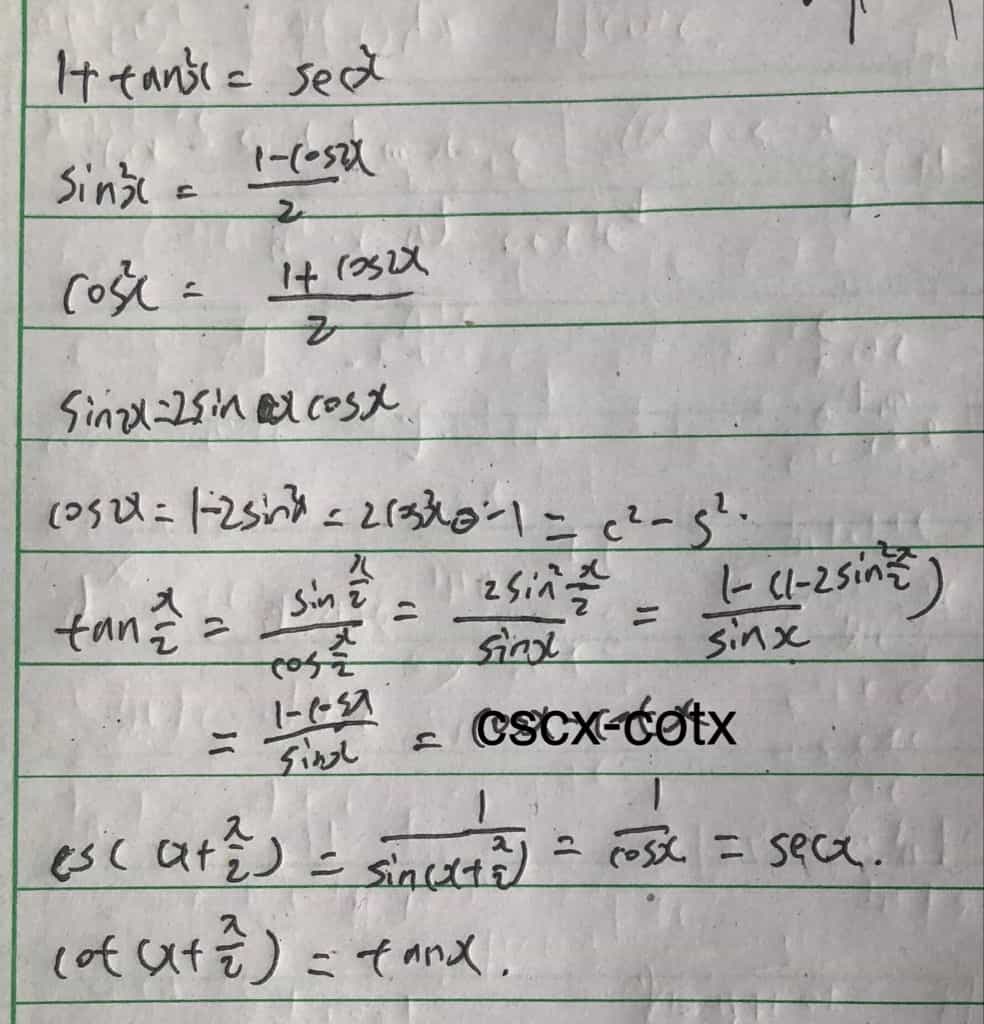 1+tan²x = sec²x
sin²x = (1-cos2x)/2
cos²x = (1+cos2x)/2
sin2x=2sinx cosx
cos2x = 1-2sin²x = 2cos²x-1 = c²-s².
tan x/2 = (sin x/2)/(cos x/2) = (2sin² x/2)/(sinx) = (1-(1-2sin² x/2))/(sinx)
= (1-cosx)/(sinx) = cscx-cotx
csc(x+π/2) = 1/(sin(x+π/2)) = 1/(cosx) = secx.
cot(x+π/2) = tanx.